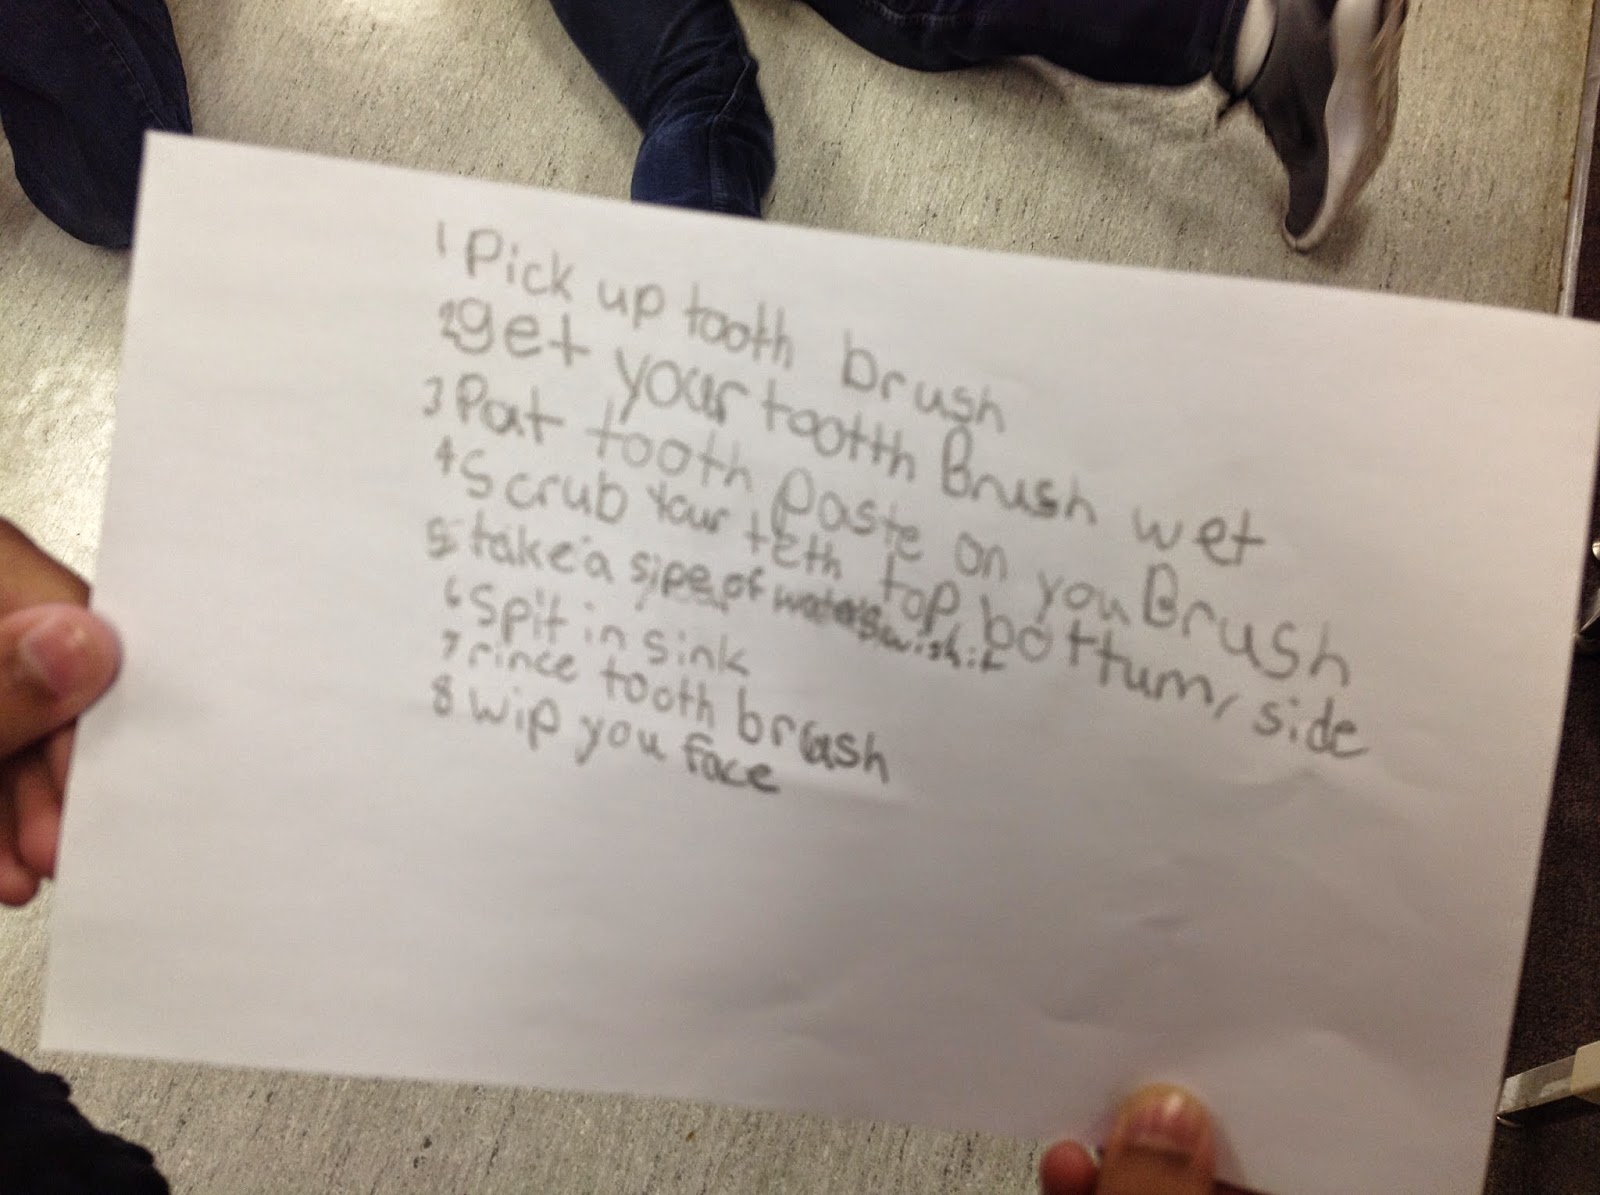 1 Pick up tooth brush
2 get your tootth Brush wet
3 Pat tooth paste on you Brush
4 Scrub Your teth top, bottum, side
5 take a sipe of water swish it
6 Spit in sink
7 rince tooth brush
8 wip you face